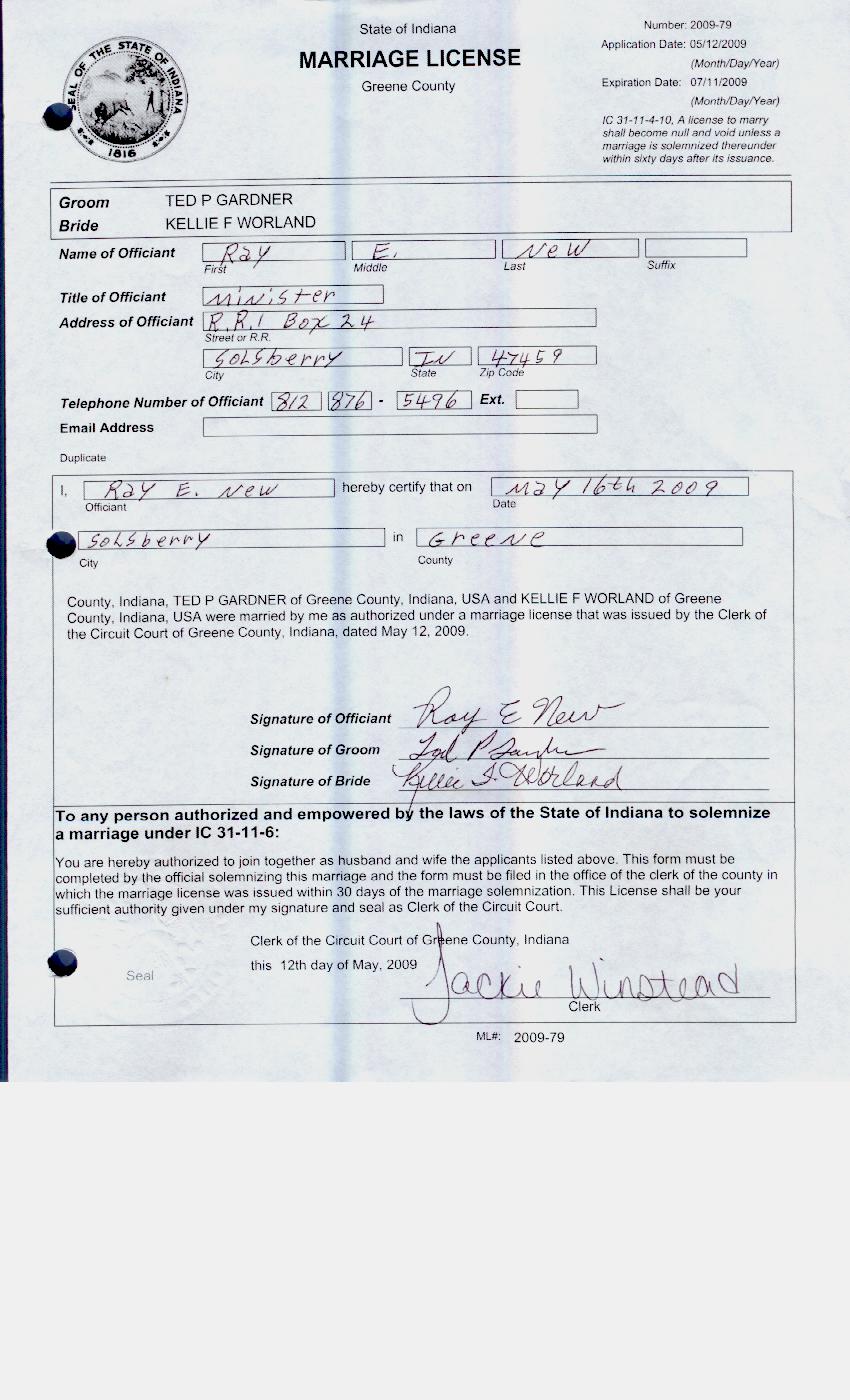 State of Indiana
MARRIAGE LICENSE
Greene County
Number: 2009-79
Application Date: 05/12/2009
(Month/Day/Year)
Expiration Date: 07/11/2009
(Month/Day/Year)
IC 31-11-4-10, A license to marry
shall become null and void unless a
marriage is solemnized thereunder
within sixty days after its issuance.
SEAL OF THE STATE OF INDIANA
1816
Groom TED P GARDNER
Bride KELLIE F WORLAND
Name of Officiant Ray E. New
First Middle Last Suffix
Title of Officiant Minister
Address of Officiant R.R.1 Box 24
Street or R.R.
Solsberry IN 47459
City State Zip Code
Telephone Number of Officiant 812 876 - 5496 Ext.
Email Address
Duplicate
I, Ray E. New hereby certify that on May 16th 2009
Officiant Date
Solsberry in Greene
City County
County, Indiana, TED P GARDNER of Greene County, Indiana, USA and KELLIE F WORLAND of Greene
County, Indiana, USA were married by me as authorized under a marriage license that was issued by the Clerk of
the Circuit Court of Greene County, Indiana, dated May 12, 2009.
Signature of Officiant Ray E New
Signature of Groom Ted P Gardner
Signature of Bride Kellie F. Worland
To any person authorized and empowered by the laws of the State of Indiana to solemnize
a marriage under IC 31-11-6:
You are hereby authorized to join together as husband and wife the applicants listed above. This form must be
completed by the official solemnizing this marriage and the form must be filed in the office of the clerk of the county in
which the marriage license was issued within 30 days of the marriage solemnization. This License shall be your
sufficient authority given under my signature and seal as Clerk of the Circuit Court.
Clerk of the Circuit Court of Greene County, Indiana
this 12th day of May, 2009 Jackie Winstead
Seal
Clerk
ML#: 2009-79